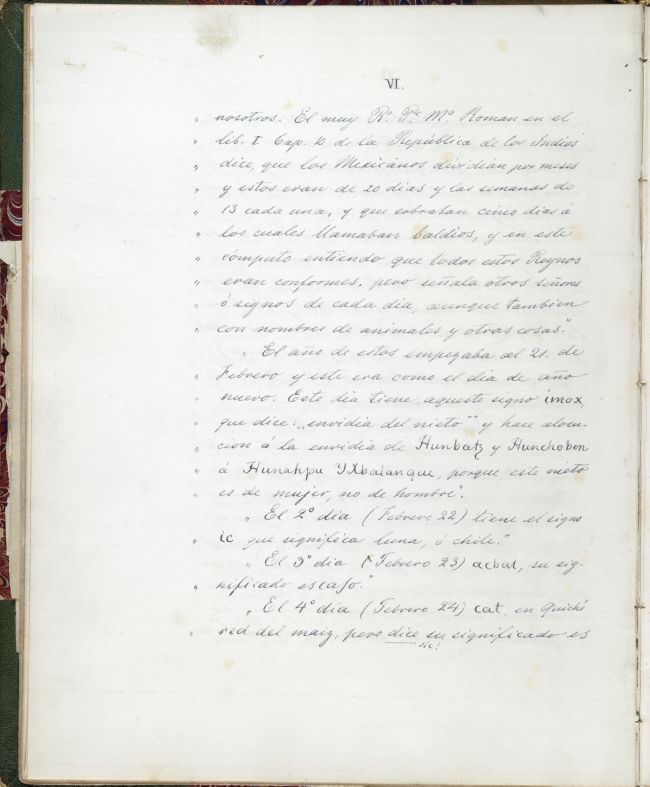 VI.
„ nosotros. El muy Rº. Pe. Mº. Roman en el
„ lib. I. Cap. 10 de la República de los Indios
„ dice, que los Mexicanos dividian por meses
„ y estos eran de 20 dias y las semanas de
„ 13 cada una, y que sobraban cinco dias á
„ los cuales llamaban baldios, y en este
„ cómputo entiendo que todos estos Reynos
„ eran conformes, pero señala otros señores
„ ó signos de cada dia, aunque tambien
„ con nombres de animales y otras cosas."
„ El año de estos empezaba al 21. de
„ Febrero y este era como el dia de año
„ nuevo. Este dia tiene aqueste signo imox,
„ que dice: „envidia del nieto"" y hace alocu-
„ cion á la envidia de Hunbatz y Hunchoben
„ á Hunahpu YXbalanque, porque este nieto
„ es de mujer, no de hombre".
„ El 2º dia (Febrero 22) tiene el signo
„ ic que significa luna, ó chile."
„ El 3º dia (Febrero 23) acbal, su sig-
„ nificado escaso."
„ El 4º dia (Febrero 24) cat, en Quiché
„ red del maiz, pero dice su significado es
sic!